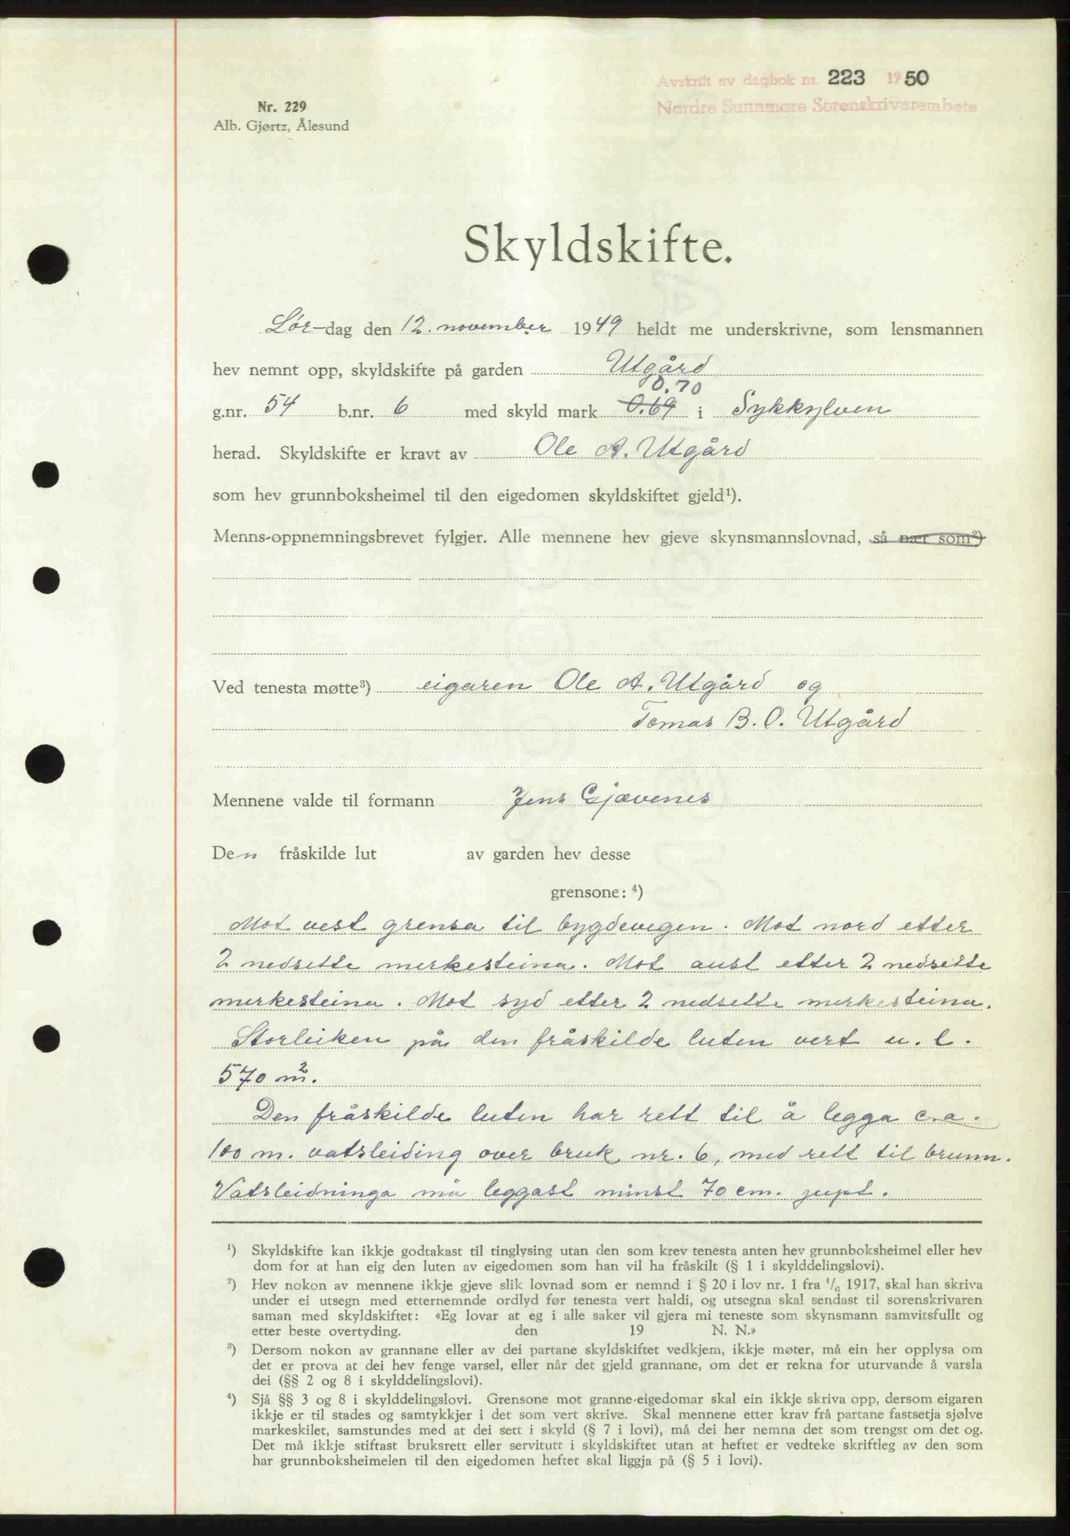 Avskrift av dagbok nr. 223 1950
Nordre Sunnmøre Sorenskrivarembete
Nr. 229
Alb. Gjørtz, Ålesund
Skyldskifte.
Lør-dag den 12. november 1949 heldt me underskrivne, som lensmannen
hev nemnt opp, skyldskifte på garden Utgård
0.70
g.nr. 54 b.nr. 6 med skyld mark 0.69 i Sykkylven
herad. Skyldskifte er kravt av Ole A. Utgård
som hev grunnboksheimel til den eigedomen skyldskiftet gjeld¹).
Menns-oppnemningsbrevet fylgjer. Alle mennene hev gjeve skynsmannslovnad, så nær som²)
Ved tenesta møtte³) eigaren Ole A. Utgård og
Tomas B. O. Utgård
Mennene valde til formann Jens Gjævenes
Den fråskilde lut av garden hev desse
grensone: ⁴)
Mot vest grensa til bygdevegen. Mot nord etter
2 nedsette merkesteina. Mot aust etter 2 nedsette
merkesteina. Mot syd etter 2 nedsette merkesteina.
Storleiken på den fråskilde luten vert u. l.
570 m².
Den fråskilde luten har rett til å legga c.a.
100 m. vatsleiding over bruk nr. 6, med rett til brunn.
Vatsleidninga må leggast minst 70 cm. jupt.
¹) Skyldskifte kan ikkje godtakast til tinglysing utan den som krev tenesta anten hev grunnboksheimel eller hev
dom for at han eig den luten av eigedomen som han vil ha fråskilt (§ 1 i skylddelingslovi).
²) Hev nokon av mennene ikkje gjeve slik lovnad som er nemnd i § 20 i lov nr. 1 fra 1917, skal han skriva
under ei utsegn med etternemnde ordlyd før tenesta vert haldi, og utsegna skal sendast til sorenskrivaren
saman med skyldskiftet: «Eg lovar at eg i alle saker vil gjera mi teneste som skynsmann samvitsfullt og
etter beste overtyding. den 19 N. N.»
³) Dersom nokon av grannane eller av dei partane skyldskiftet vedkjem, ikkje møter, må ein her opplysa om
det er prova at dei hev fenge varsel, eller når det gjeld grannane, om det er rekna for uturvande å varsla
dei (§§ 2 og 8 i skylddelingslovi).
⁴) Sjå §§ 3 og 8 i skylddelingslovi. Grensone mot granne-eigedomar skal ein ikkje skriva opp, dersom eigaren
ikkje er til stades og samtykkjer i det som vert skrive. Skal mennene etter krav frå partane fastsetja sjølve
markeskilet, samstundes med at dei sett i skyld (§ 7 i lovi), må dei her nemna det som trengst om det og.
Det må ikkje stiftast bruksrett eller servitutt i skyldskiftet utan at heftet er vedteke skriftleg av den som
har grunnboksheimelen til den eigedomen heftet skal liggja på (§ 5 i lovi).